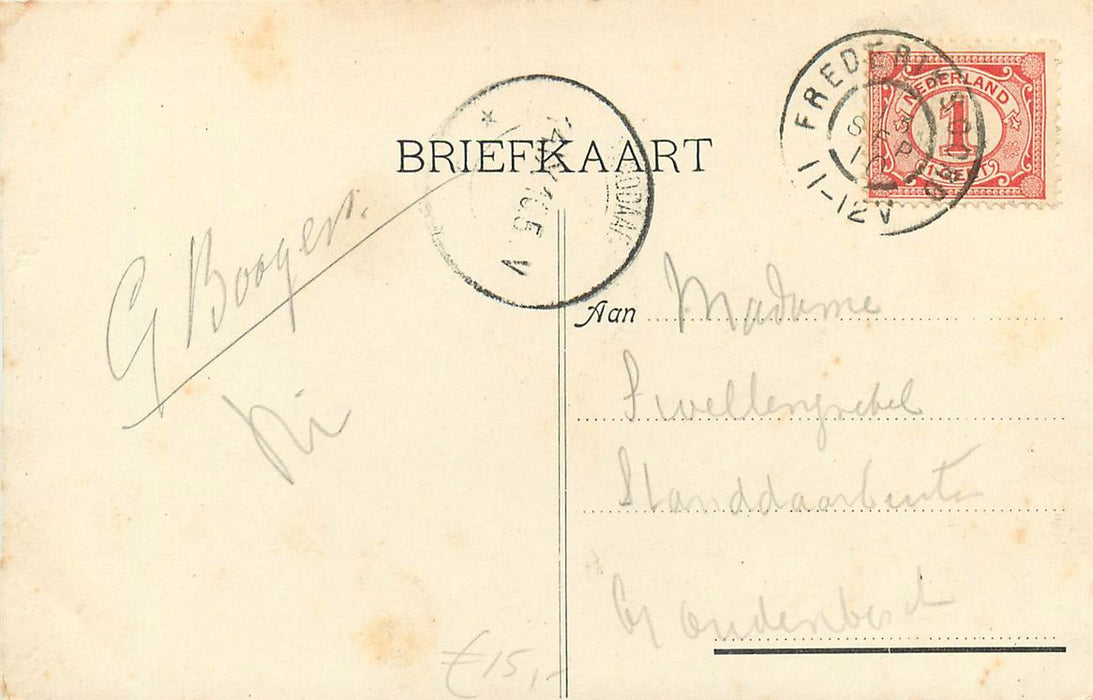 BRIEFKAART
FREDERIKSOORD
8 SEP 10
11-12V
NEDERLAND
1
1 CENT 1
5 V
G Booger
Aan Madame
Swellengrebel
Standdaarbuiten
Oudenbosch
€15,-